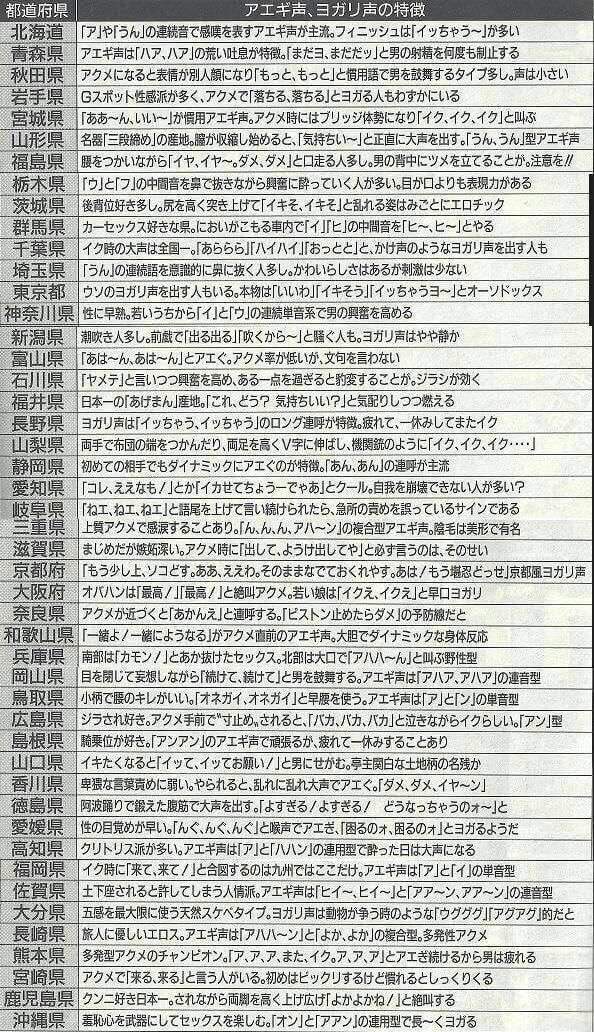 都道府県 アエギ声、ヨガリ声の特徴
北海道 「ア」や「うん」の連続音で感嘆を表すアエギ声が主流。フィニッシュは「イッちゃう〜」が多い
青森県 アエギ声は「ハア、ハア」の荒い吐息が特徴。「まだヨ、まだだッ」と男の射精を何度も制止する
秋田県 アクメになると表情が別人顔になり「もっと、もっと」と慣用語で男を鼓舞するタイプ多し。声は小さい
岩手県 Gスポット性感派が多く、アクメで「落ちる、落ちる」とヨガる人もわずかにいる
宮城県 「ああ〜ん、いい〜」が慣用アエギ声。アクメ時にはブリッジ体勢になり「イク、イク、イク」と叫ぶ
山形県 名器「三段締め」の産地。膣が収縮し始めると、「気持ちい〜」と正直に大声を出す。「うん、うん」型アエギ声
福島県 腰をつかいながら「イヤ、イヤ〜。ダメ、ダメ」と口走る人多し。男の背中にツメを立てることが。注意を!!
栃木県 「ウ」と「フ」の中間音を鼻で抜きながら興奮に酔っていく人が多い。目が口よりも表現力がある
茨城県 後背位好き多し。尻を高く突き上げて「イキそ、イキそ」と乱れる姿はみごとにエロチック
群馬県 カーセックス好きな県。においがこもる車内で「イ」「ヒ」の中間音を「ヒ〜、ヒ〜」とやる
千葉県 イク時の大声は全国一。「あららら」「ハイハイ」「おっとと」と、かけ声のようなヨガリ声を出す人も
埼玉県 「うん」の連続語を意識的に鼻に抜く人多し。かわいらしさはあるが刺激は少ない
東京都 ウソのヨガリ声を出す人もいる。本物は「いいわ」「イキそう」「イッちゃうヨ〜」とオーソドックス
神奈川県 性に早熟。若いうちから「イ」と「ウ」の連続単音系で男の興奮を高める
新潟県 潮吹き人多し。前戯で「出る出る」「吹くから〜」と騒ぐ人も。ヨガリ声はやや静か
富山県 「あは〜ん、あは〜ん」とアエぐ。アクメ率が低いが、文句を言わない
石川県 「ヤメテ」と言いつつ興奮を高め、ある一点を過ぎると豹変することが。ジラシが効く
福井県 日本一の「あげまん」産地。「これ、どう? 気持ちいい?」と気配りしつつ燃える
長野県 ヨガリ声は「イッちゃう、イッちゃう」のロング連呼が特徴。疲れて、一休みしてまたイク
山梨県 両手で布団の端をつかんだり、両足を高くV字に伸ばし、機関銃のように「イク、イク、イク‥‥」
静岡県 初めての相手でもダイナミックにアエぐのが特徴。「あん、あん」の連呼が主流
愛知県 「コレ、ええなも!」とか「イカせてちょうーでゃあ」とクール。自我を崩壊できない人が多い?
岐阜県 「ねエ、ねエ、ねエ」と語尾を上げて言い続けられたら、急所の責めを誤っているサインである
三重県 上質アクメで感涙することあり。「ん、ん、ん、アハ〜ン」の複合型アエギ声。陰毛は美形で有名
滋賀県 まじめだが嫉妬深い。アクメ時に「出して、ようけ出してや」と必ず言うのは、そのせい
京都府 「もう少し上、ソコどす。ああ、ええわ。そのままなでておくれやす。あは!もう堪忍どっせ」京都風ヨガリ声
大阪府 オバハンは「最高!」「最高!」と絶叫アクメ。若い娘は「イクえ、イクえ」と早口ヨガリ
奈良県 アクメが近づくと「あかんえ」と連呼する。「ピストン止めたらダメ」の予防線だと
和歌山県 「一緒よ!一緒にようなる」がアクメ直前のアエギ声。大胆でダイナミックな身体反応
兵庫県 南部は「カモン!」とあか抜けたセックス。北部は大口で「アハハ〜ん」と叫ぶ野性型
岡山県 目を閉じて妄想しながら「続けて、続けて」と男を鼓舞する。アエギ声は「アハア、アハア」の連音型
鳥取県 小柄で腰のキレがいい。「オネガイ、オネガイ」と早腰を使う。アエギ声は「ア」と「ン」の単音型
広島県 ジラされ好き。アクメ手前で“寸止め〟されると、「バカ、バカ、バカ」と泣きながらイクらしい。「アン」型
島根県 騎乗位が好き。「アンアン」のアエギ声で頑張るが、疲れて一休みすることあり
山口県 イキたくなると「イッて、イッてお願い!」と男にせがむ。亭主関白な土地柄の名残か
香川県 卑猥な言葉責めに弱い。やられると、乱れに乱れ大声でアエぐ。「ダメ、ダメ、イヤ〜ン」
徳島県 阿波踊りで鍛えた腹筋で大声を出す。「よすぎる!よすぎる! どうなっちゃうのォ〜」と
愛媛県 性の目覚めが早い。「んぐ、んぐ、んぐ」と喉声でアエぎ、「困るのォ、困るのォ」とヨガるようだ
高知県 クリトリス派が多い。アエギ声は「ア」と「ハハン」の連用型で酔った日は大声になる
福岡県 イク時に「来て、来て!」と合図するのは九州ではここだけ。アエギ声は「ア」と「イ」の単音型
佐賀県 土下座されると許してしまう人情派。アエギ声は「ヒイ〜、ヒイ〜」と「アア〜ン、アア〜ン」の連音型
大分県 五感を最大限に使う天然スケベタイプ。ヨガリ声は動物が争う時のような「ウグググ」「アグアグ」的だと
長崎県 旅人に優しいエロス。アエギ声は「アハハ〜ン」と「よか、よか」の複合型。多発性アクメ
熊本県 多発型アクメのチャンピオン。「ア、ア、ア、また、イク。ア、ア、ア」とアエぎ続けるから男は疲れる
宮崎県 アクメで「来る、来る」と言う人がいる。初めはビックリするけど慣れるとしっくりくる
鹿児島県 クンニ好き日本一。されながら両脚を高く上げ広げ「よかよかね!」と絶叫する
沖縄県 羞恥心を武器にしてセックスを楽しむ。「オン」と「アアン」の連用型で長〜くヨガる